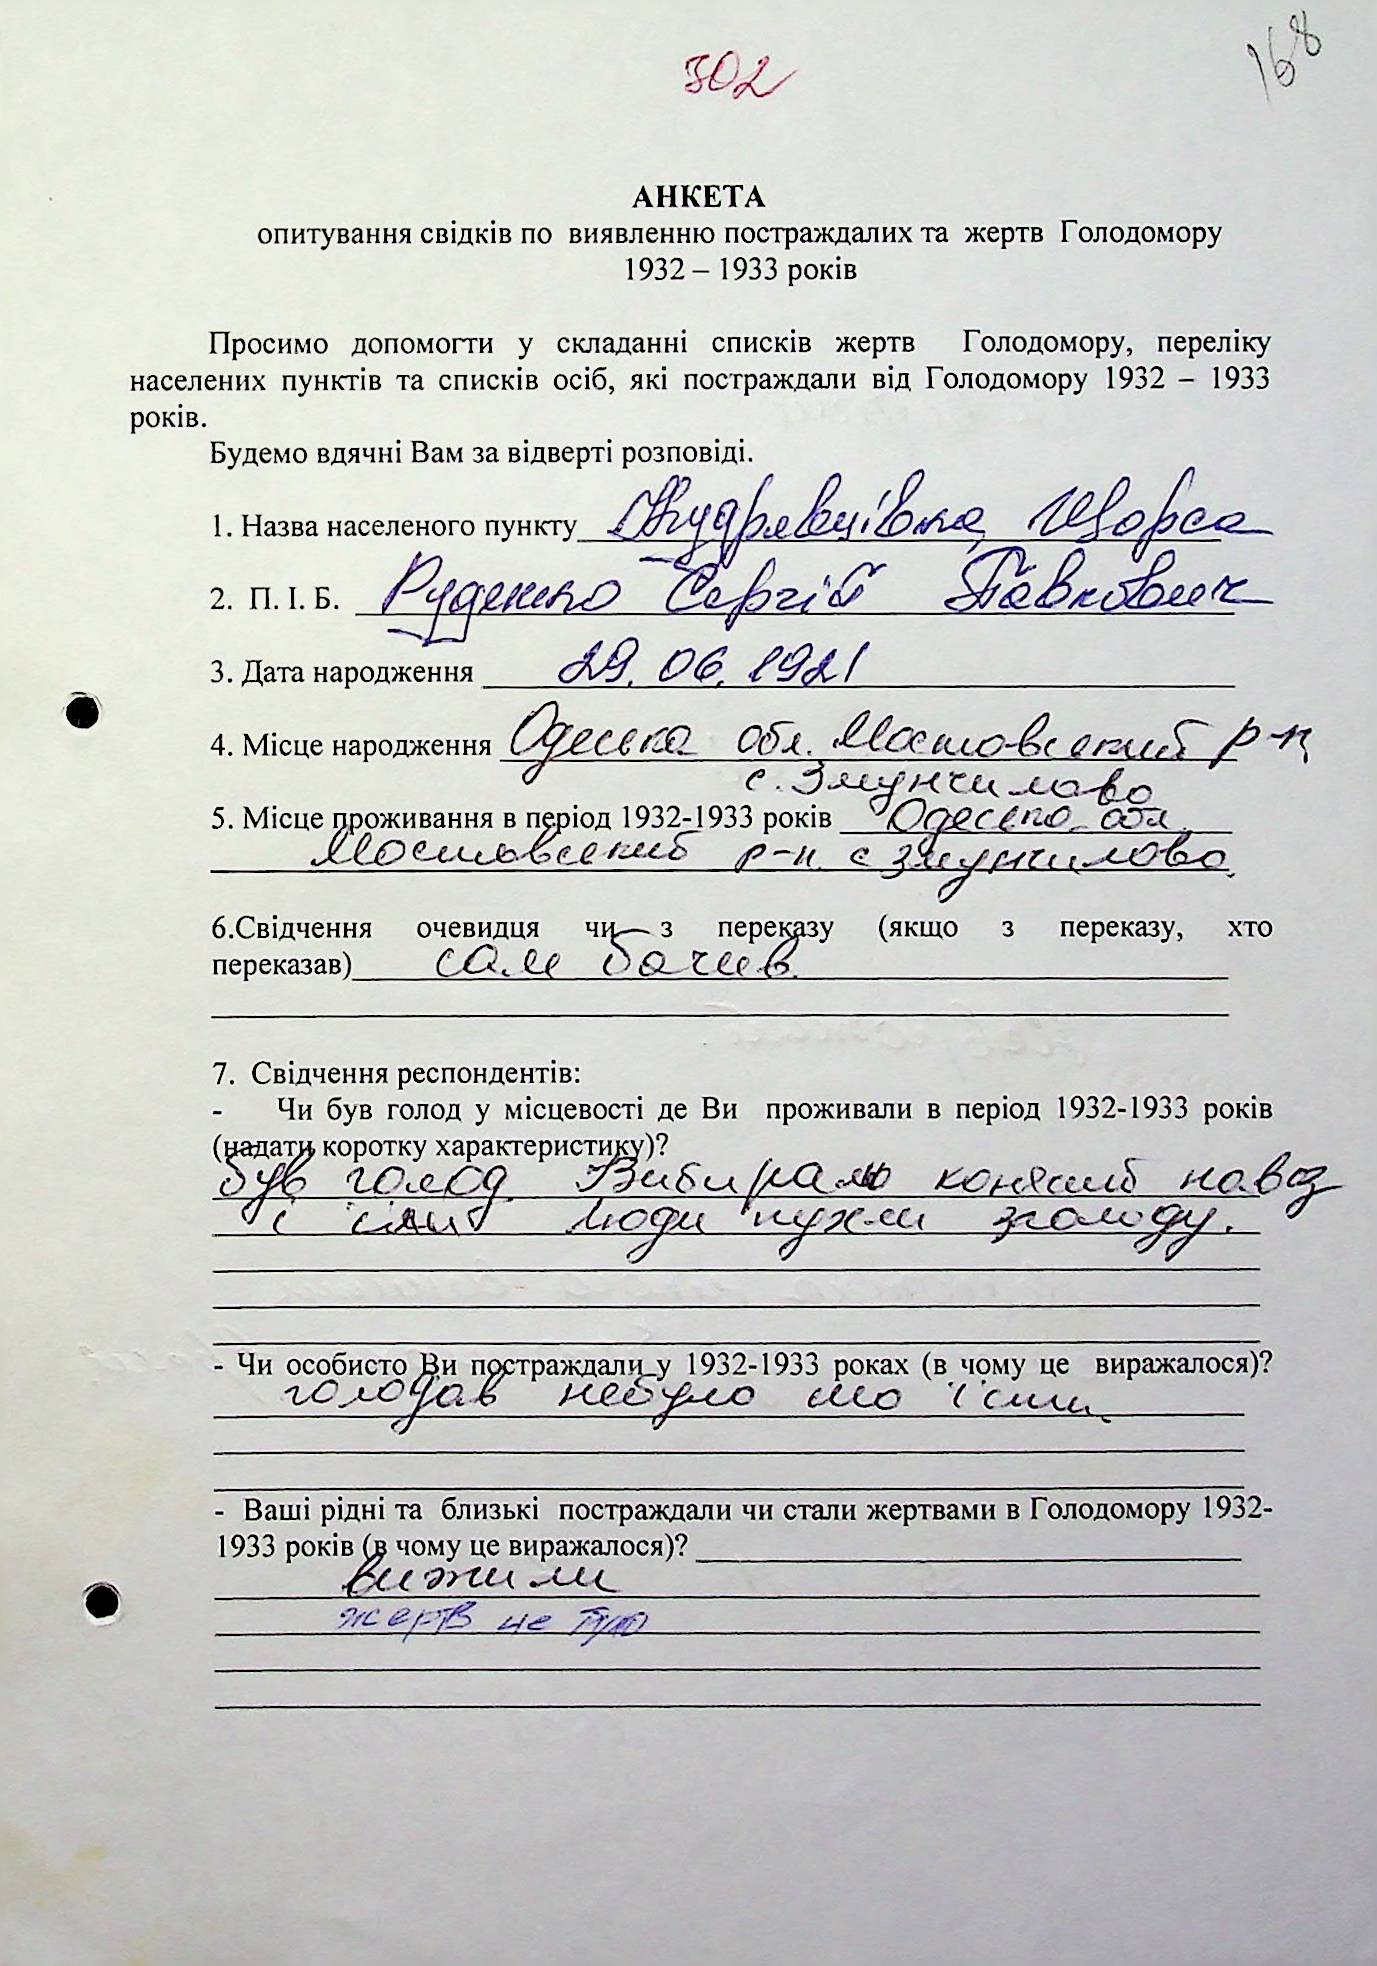 168
302
АНКЕТА
опитування свідків по виявленню постраждалих та жертв Голодомору
1932 – 1933 років
Просимо допомогти у складанні списків жертв Голодомору, переліку
населених пунктів та списків осіб, які постраждали від Голодомору 1932 – 1933
років.
Будемо вдячні Вам за відверті розповіді.
1. Назва населеного пункту Кудрявцівка, Щорса
2. П. І. Б. Руденко Сергій Павлович
3. Дата народження 29.06.1921
4. Місце народження Одеська обл. Мостовський р-н
с. Змунчилово
5. Місце проживання в період 1932-1933 років Одеська обл.
Мостовський р-н с Змунчилово
6.Свідчення очевидця чи з переказу (якщо з переказу, хто
переказав) сам бачив.
7. Свідчення респондентів:
- Чи був голод у місцевості де Ви проживали в період 1932-1933 років
(надати коротку характеристику)?
був голод. Вибирали конячий навоз
і їли люди пухли зголоду.
- Чи особисто Ви постраждали у 1932-1933 роках (в чому це виражалося)?
голодав небуло шо їсти.
- Ваші рідні та близькі постраждали чи стали жертвами в Голодомору 1932-
1933 років (в чому це виражалося)?
вижили
жертв не було